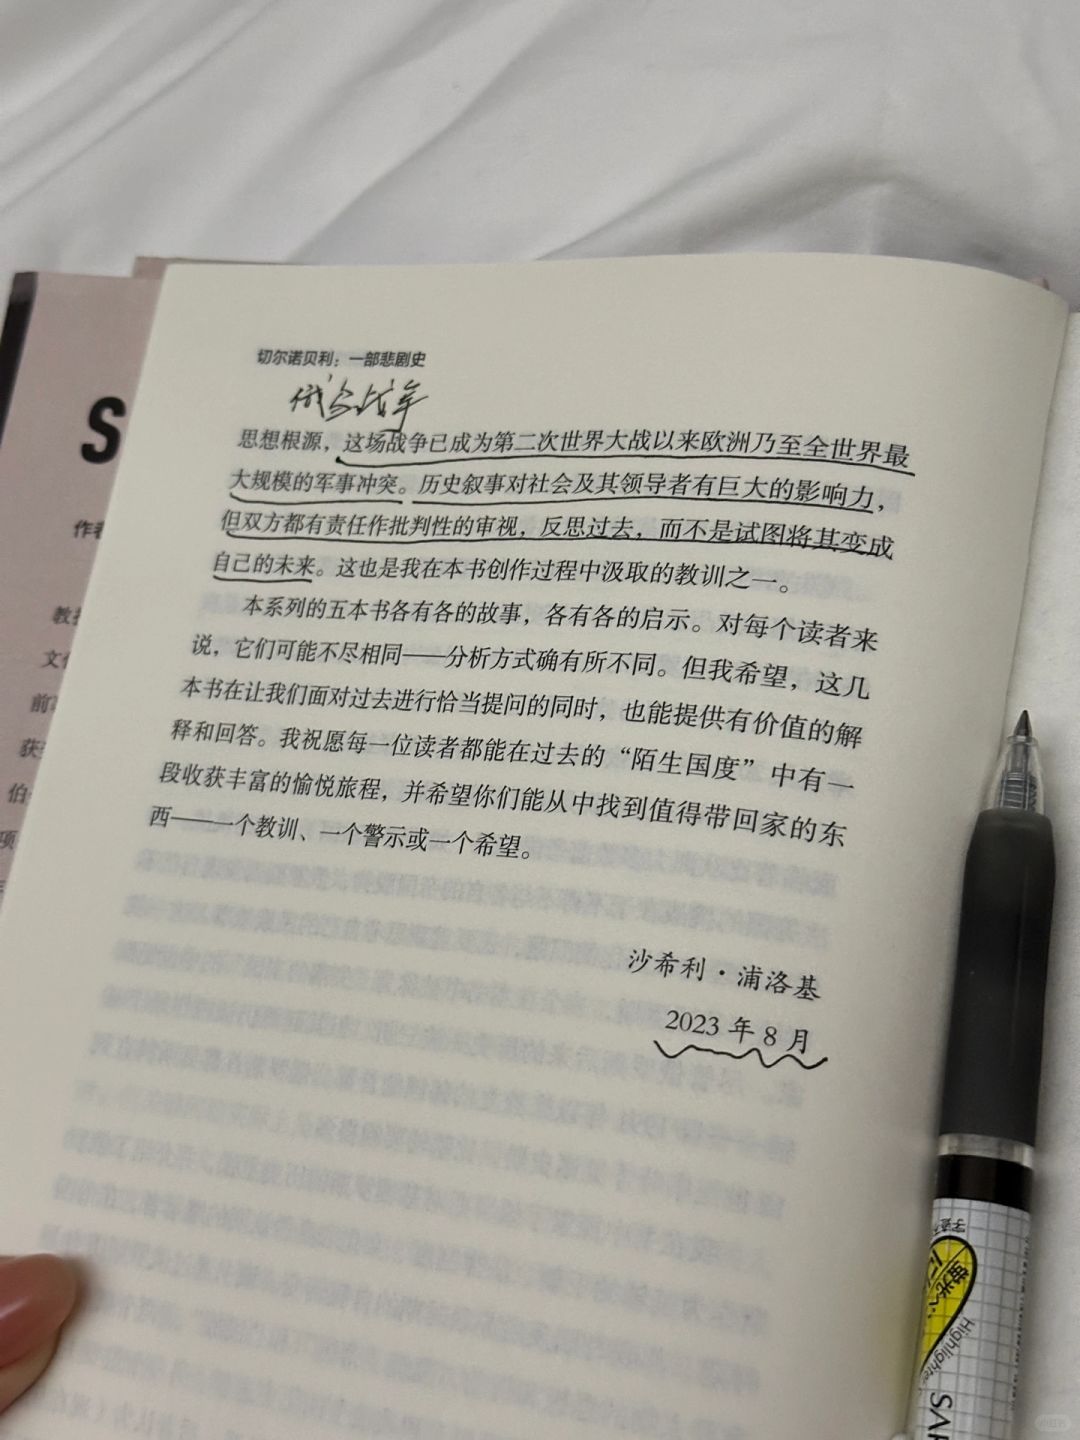 切尔诺贝利：一部悲剧史
俄乌战争
思想根源，这场战争已成为第二次世界大战以来欧洲乃至全世界最
大规模的军事冲突。历史叙事对社会及其领导者有巨大的影响力，
但双方都有责任作批判性的审视，反思过去，而不是试图将其变成
自己的未来。这也是我在本书创作过程中汲取的教训之一。
本系列的五本书各有各的故事，各有各的启示。对每个读者来
说，它们可能不尽相同——分析方式确有所不同。但我希望，这几
本书在让我们面对过去进行恰当提问的同时，也能提供有价值的解
释和回答。我祝愿每一位读者都能在过去的“陌生国度”中有一
段收获丰富的愉悦旅程，并希望你们能从中找到值得带回家的东
西——一个教训、一个警示或一个希望。
沙希利·浦洛基
2023 年 8 月
S
作者
文
前
获
伯
项
蛍光ペ
Highlighter
SAR